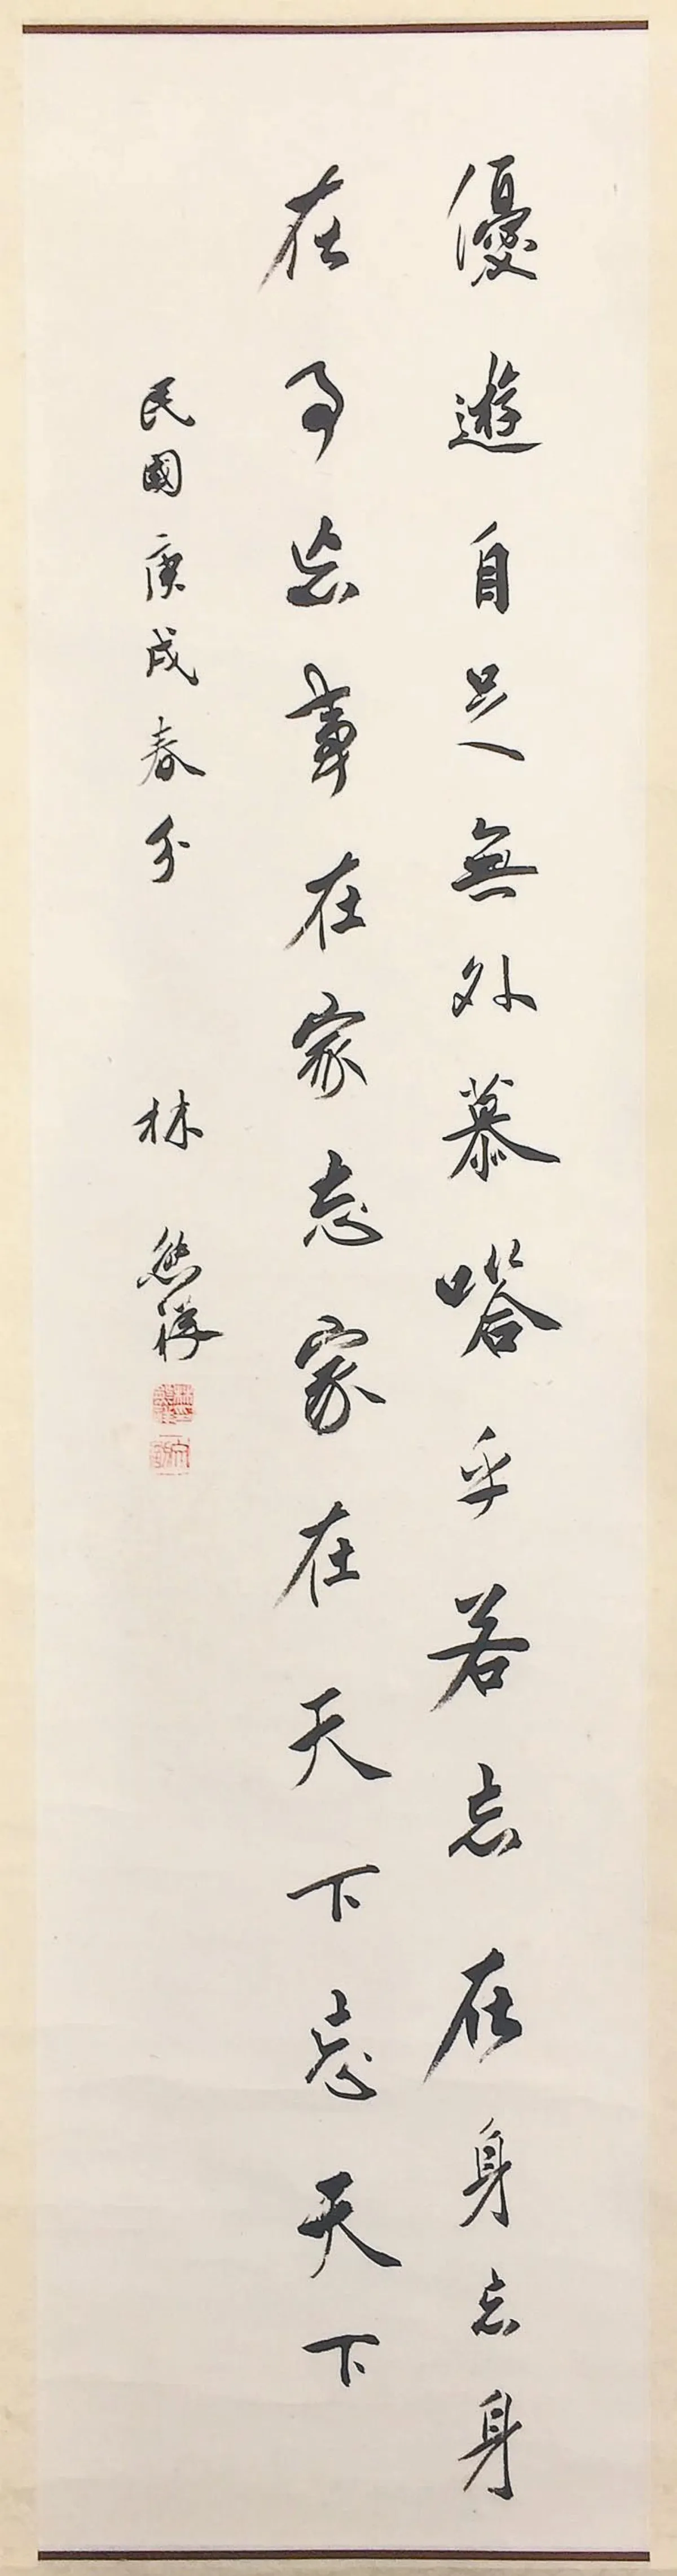 優遊自足無外慕嗒乎若忘在身忘身
在事忘事在家忘家在天下忘天下
民國庚戌春分 林熊祥